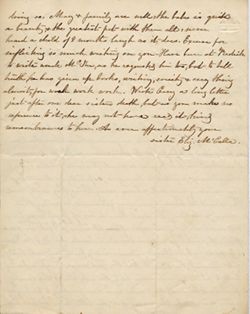 doing so. Mary & family are well the babe is quite
a beauty, & the greatest pet with them all; never
heard a child of 8 months laugh as it does. Excuse for
inflicting so much writing on you. Have been at
to write uncle as he requested him too, but to tell
truth he has given up books, writing, society & every thing
almost for work work work. Wrote Amy a long letter
just after our dear sisters death, but as you makes no
reference to it she may not have rec'd it, kind
remembrances to her. As ever affectionately your
sister Eliz. McCalla